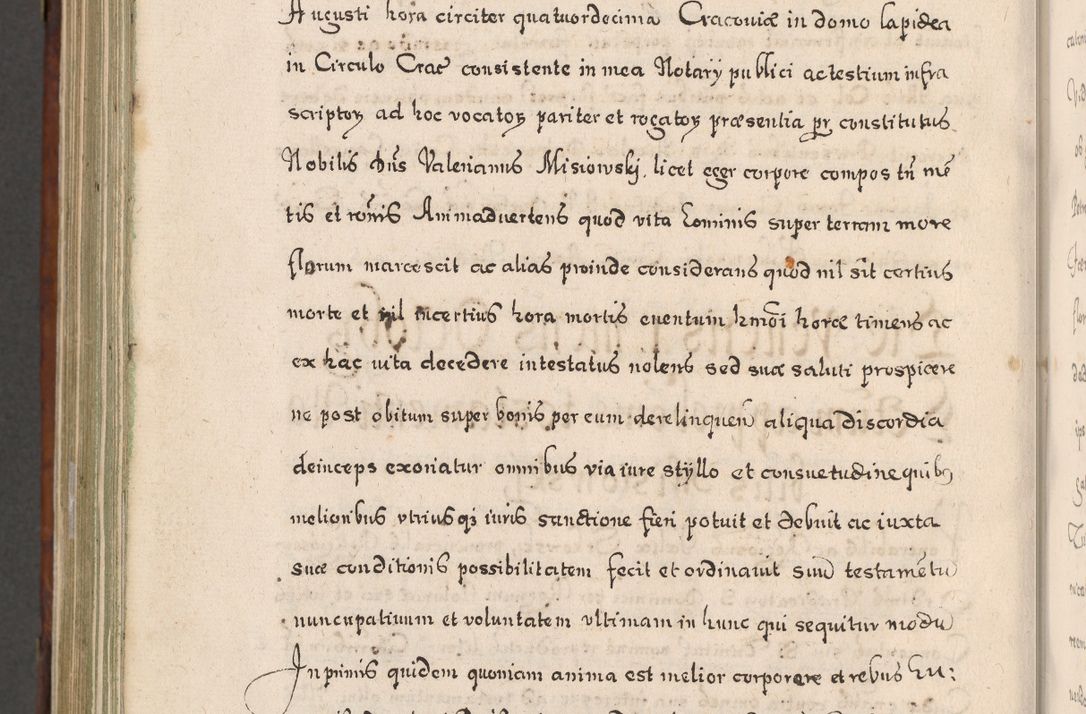 Augusti hora circiter quatuordecima Cracoviæ in domo lapidea
in Circulo Crac consistente in mea Notarÿ publici ac testium infra
scriptoꝝ ad hoc vocatoꝝ pariter et rogatoꝝ præsentia pr constitutus
Nobilis dn̄s Valerianus Misiowskj. licet eger corpore compos tn̄ mē
tis et rōnis Animaduertens quod vita hominis super terram more
florum marcescit ac alias proinde considerans quod nil sit certius
morte et nil incertius hora mortis euentum hmōi horæ timens ac
ex hac vita decedere intestatus nolens sed suæ saluti prospicere
ne post obitum super bonis per eum derelinquen̄ aliqua discordia
deinceps exoriatur omnibus via iure stÿllo et consuetudine quibꝫ
melioribus vtriusqꝫ iuris sanctione fieri potuit et debuit ac iuxta
suæ conditionis possibilitatem fecit et ordinauit suū testamētū
nuncupatiuum et voluntatem vltimam in hunc qui sequitur modū
Inprimis quidem quoniam anima est melior corporore et rebus hu: